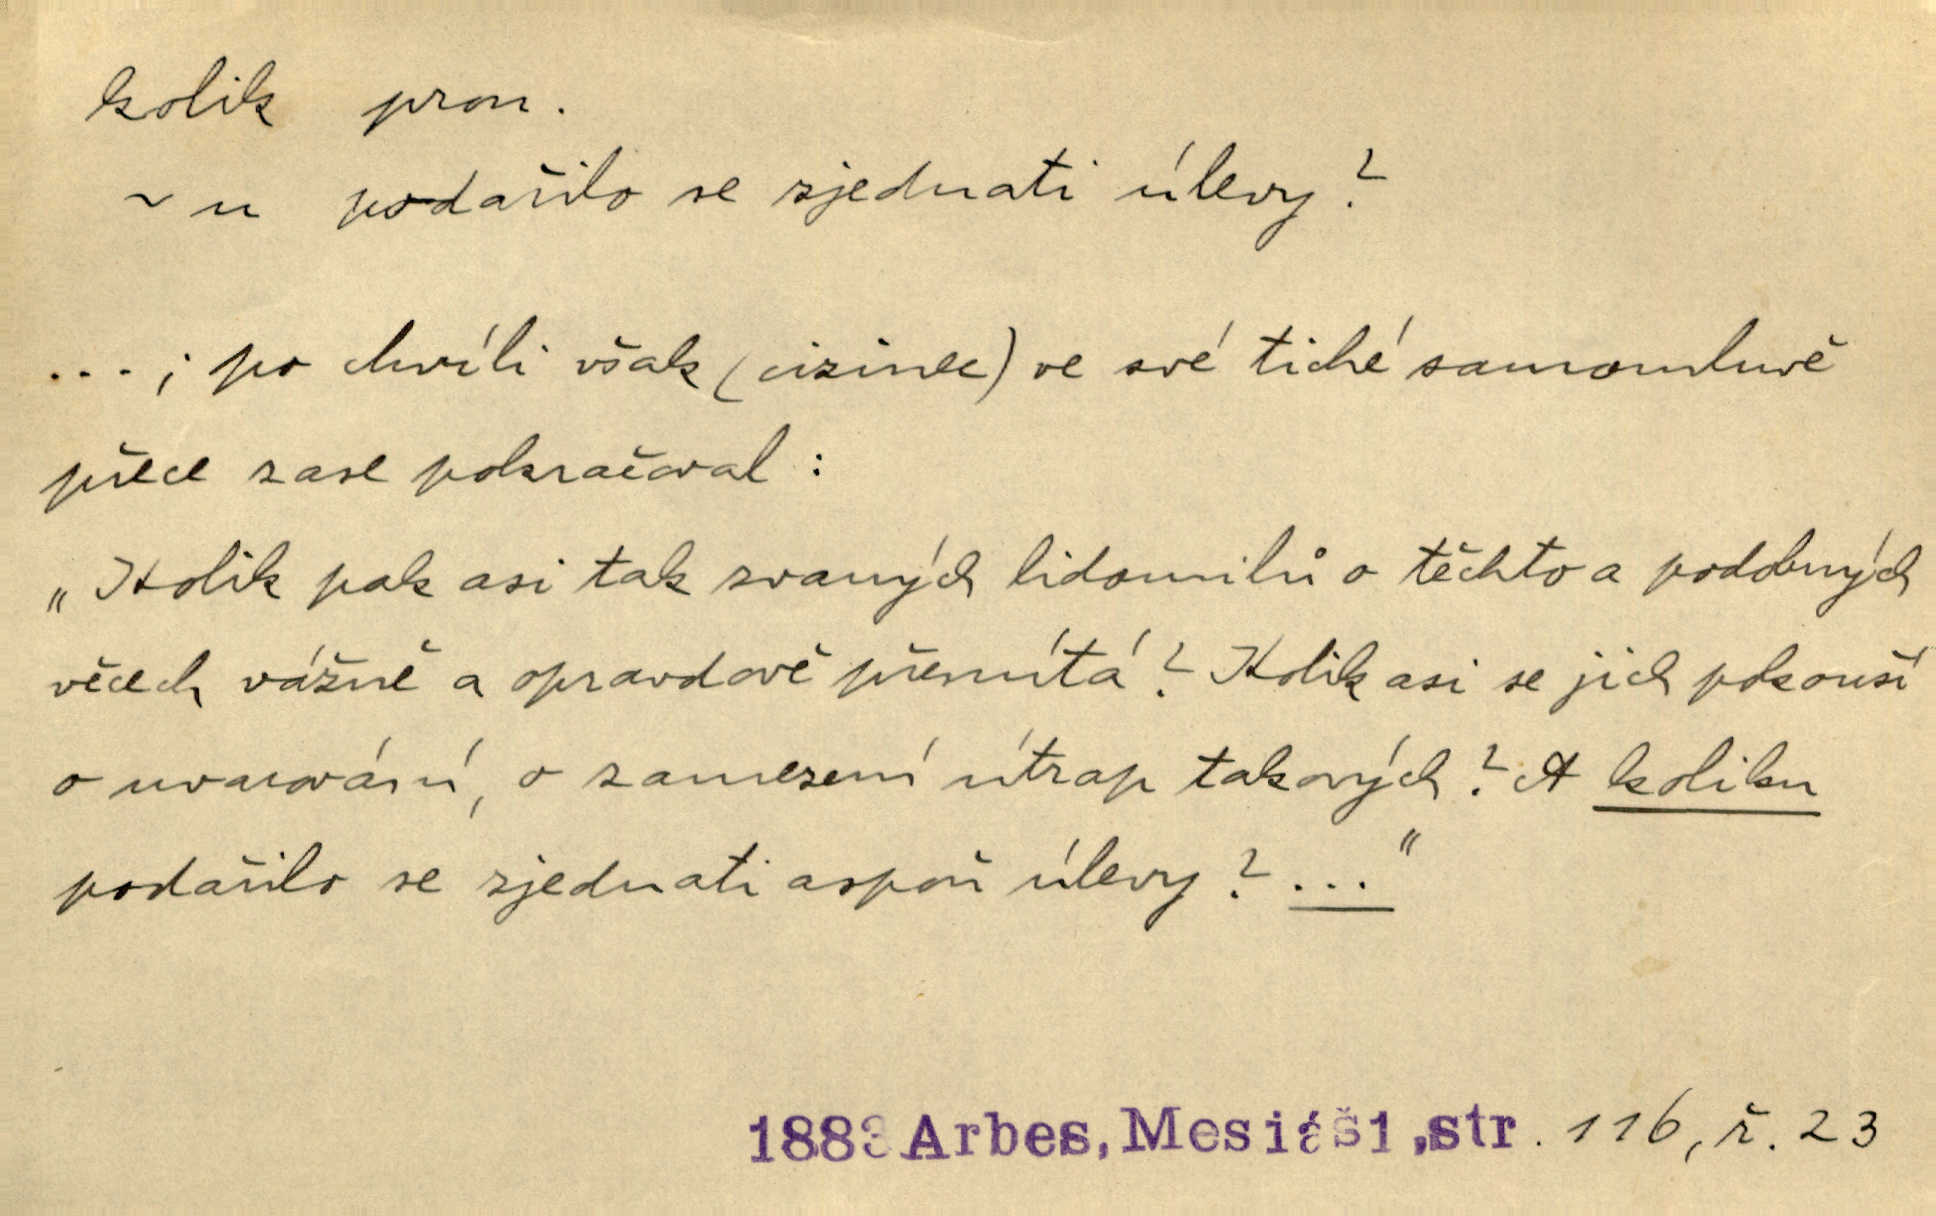 kolik pron.
~ u podařilo se zjednati úlevy?
...; po chvíli však (cizinec) ve své tiché samomluvě
přece zase pokračoval:
„Kolik pak asi tak zvaných lidomilů o těchto a podobných
věcech vážně a opravdově přemítá? Kolik asi se jich pokouší
o uvarování, o zamezení útrap takových? A koliku
podařilo se zjednati aspoň úlevy? ..."
1883 Arbes, Mesiáš1, str. 116, ř. 23